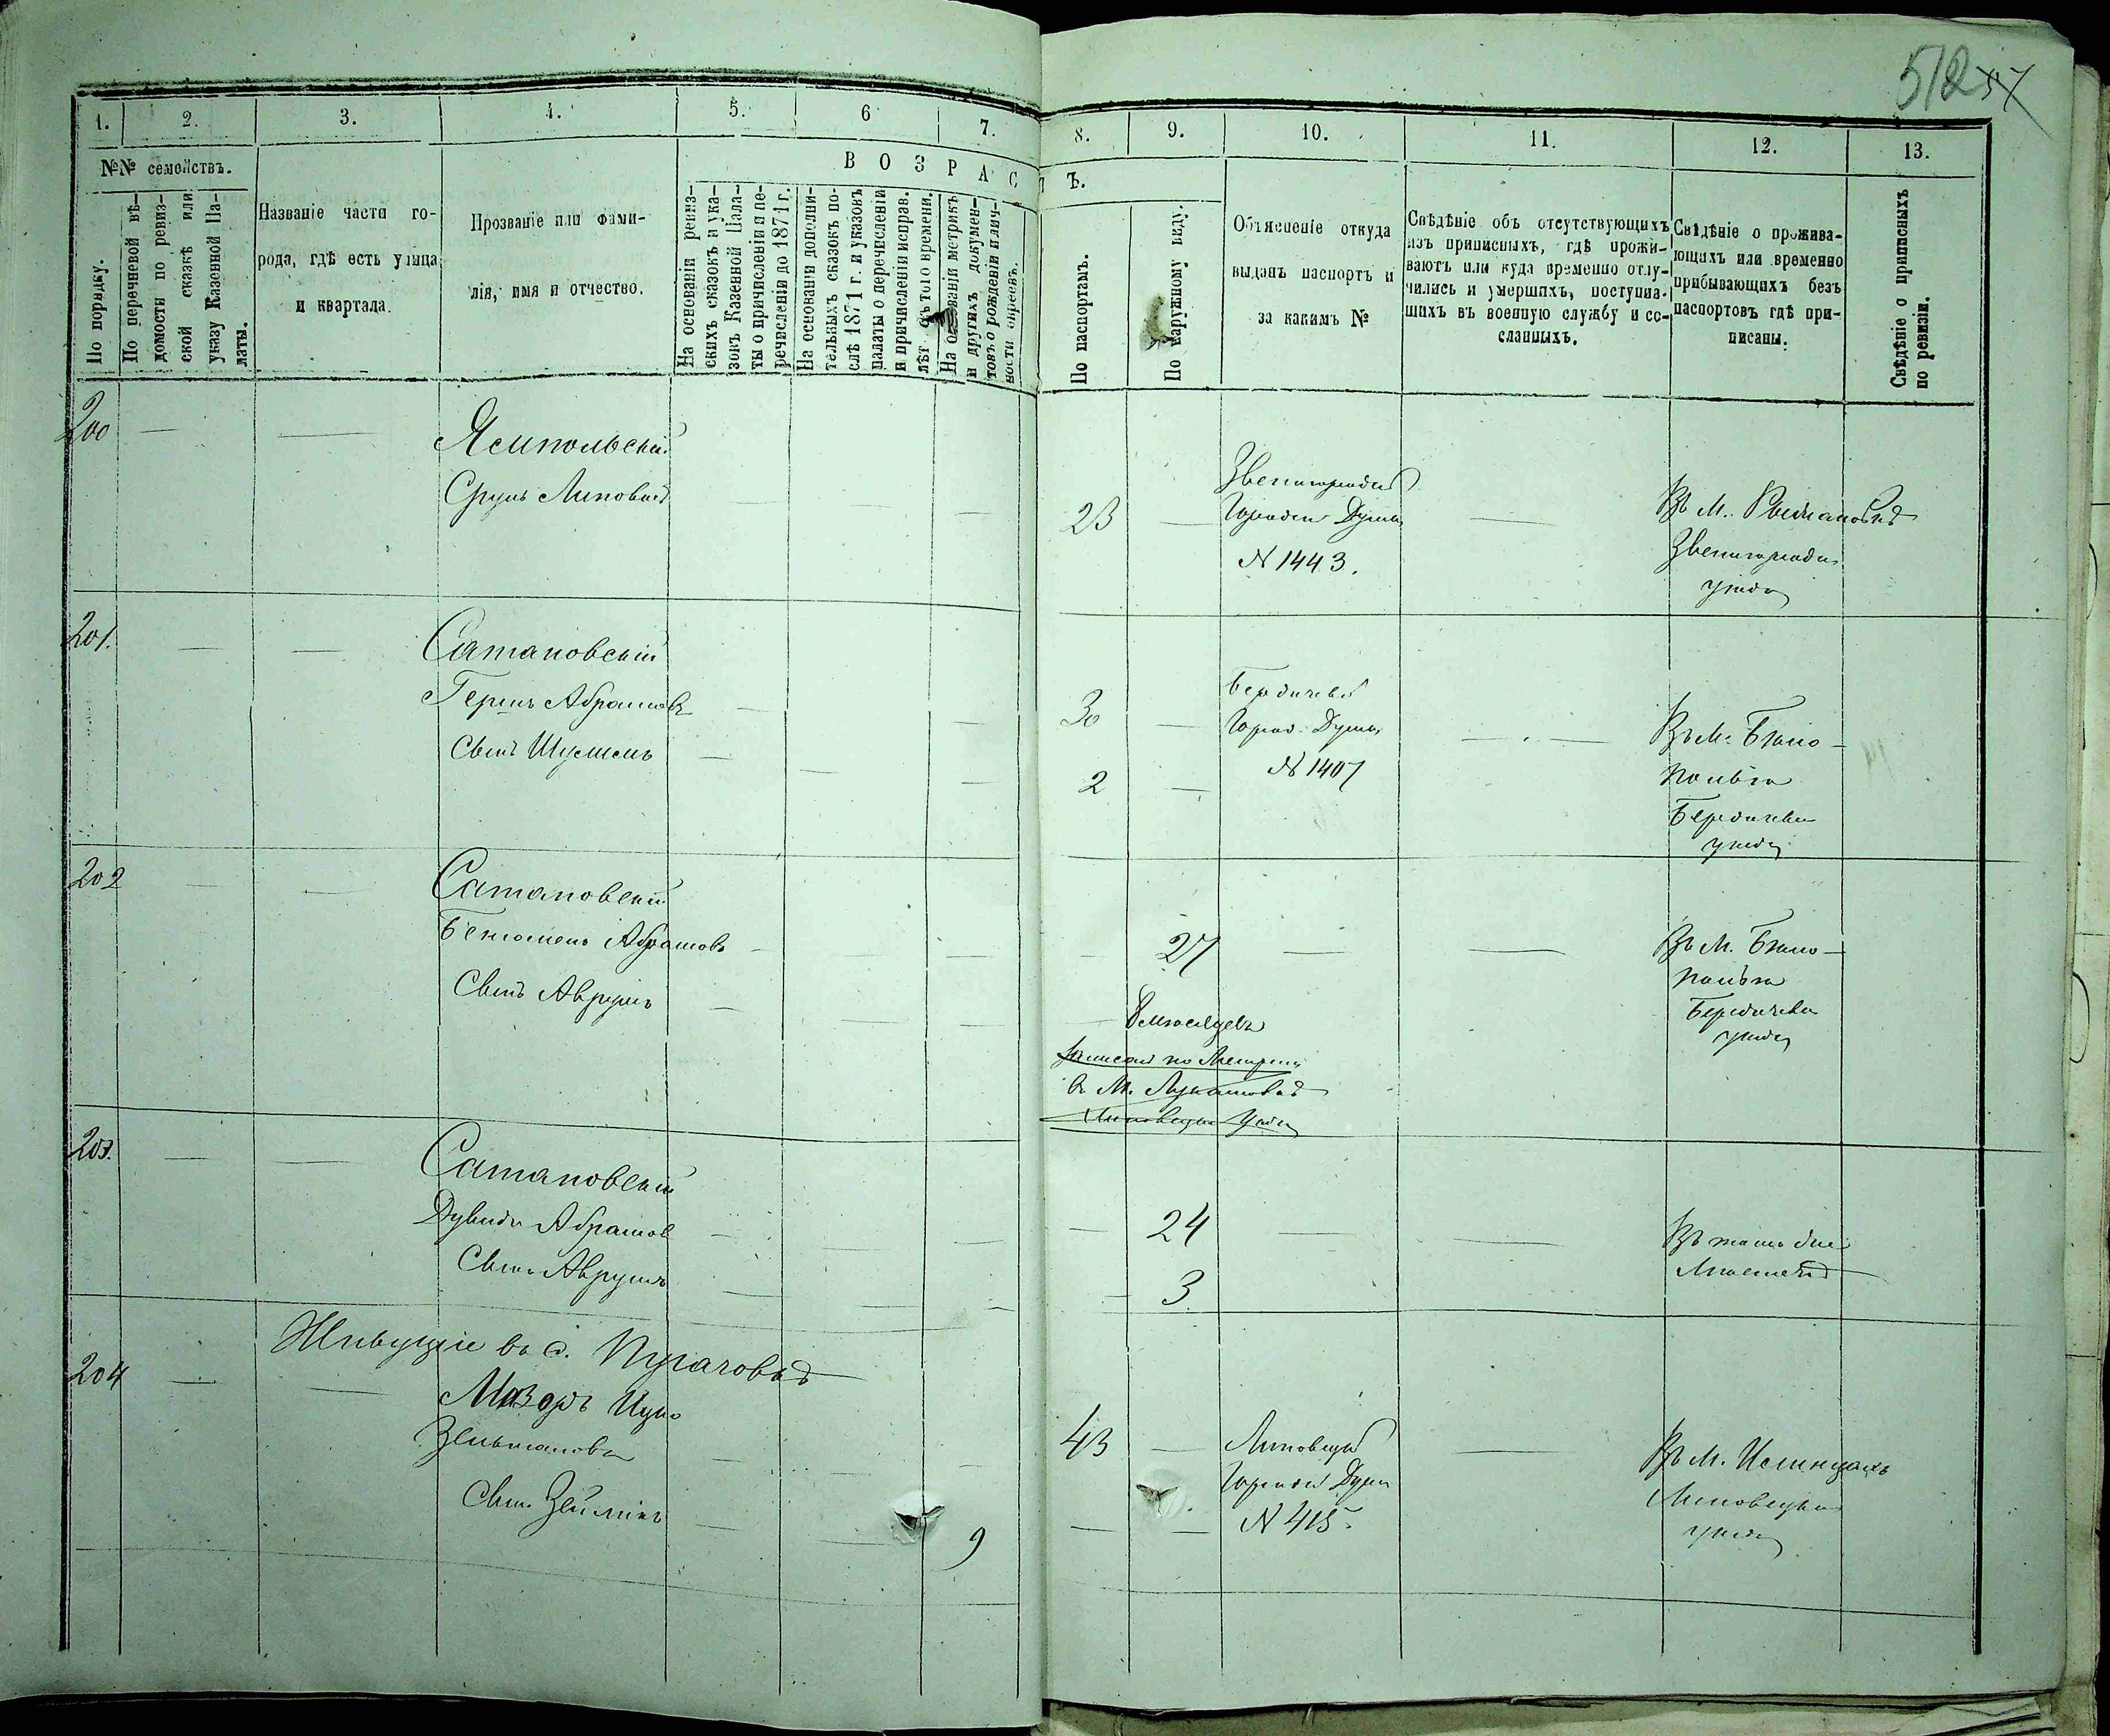 512
1.
2.
3.
4.
5.
6
7.
8.
9.
10.
11.
12.
13.
№№ семействъ.
ВОЗРАСТЪ.
По порядку.
По перечневой вѣ-
домости по ревиз-
ской сказкѣ или
указу Казенной Па-
латы.
Названіе части го-
рода, гдѣ есть улица
и квартала.
Прозваніе или фами-
лія, имя и отчество.
На основаніи ревиз-
скихъ сказокъ и ука-
зовъ Казенной Пала-
ты о причисленіи и пе-
речисленіи до 1871 г.
На основаніи дополни-
тельныхъ сказокъ по-
слѣ 1871 г. и указовъ
палаты о перечисленіи
и причисленіи исправ.
лѣт отъ того времени.
На основаніи метрикъ
и другихъ докумен-
товъ о рожденіи и лич-
ности евреевъ.
По паспортамъ.
По наружному виду.
Объясненіе откуда
выданъ паспортъ и
за какимъ №
Свѣдѣніе объ отсутствующихъ
изъ приписныхъ, гдѣ прожи-
ваютъ или куда временно отлу-
чились и умершихъ, поступив-
шихъ въ военную службу и со-
сланныхъ.
Свѣдѣніе о прожива-
ющихъ или временно
прибывающихъ безъ
паспортовъ гдѣ при-
писаны.
Свѣдѣніе о приписныхъ
по ревизіи.
200
Ясипольскій
Сруль Липовъ
23
Звенигородск
Городск Думы
N 1443.
Въ М.
Звенигородск
уѣзда
201.
Сатановскій
Гершъ Абрамовъ
Сынъ Шулимъ
30
2
Бердичевс
Город. Думы
N 1407
Въ М. Бѣло-
польѣ
Бердичевск
уѣзда
202
Сатановскій
Беніоминъ Абрамовъ
Сынъ Аврумъ
27
8 мѣсяцевъ
записан по Метрик
в М. Лукашовкѣ
Липовецка уѣзда
Въ М. Бѣло-
польѣ
Бердичевск
уѣзда
203.
Сатановскій
Дувидъ Абрамов
Сынъ Аврумъ
24
3
Въ томъ же
Мѣстечкѣ
Живущіе въ с. Пугачовкѣ
204
Мазоръ Ицко
Зельмановъ
Сынъ Зейликъ
9
43
Липовецк
Городск Думы
N 415.
Въ М. Илинцахъ
Липовецка
уѣзда